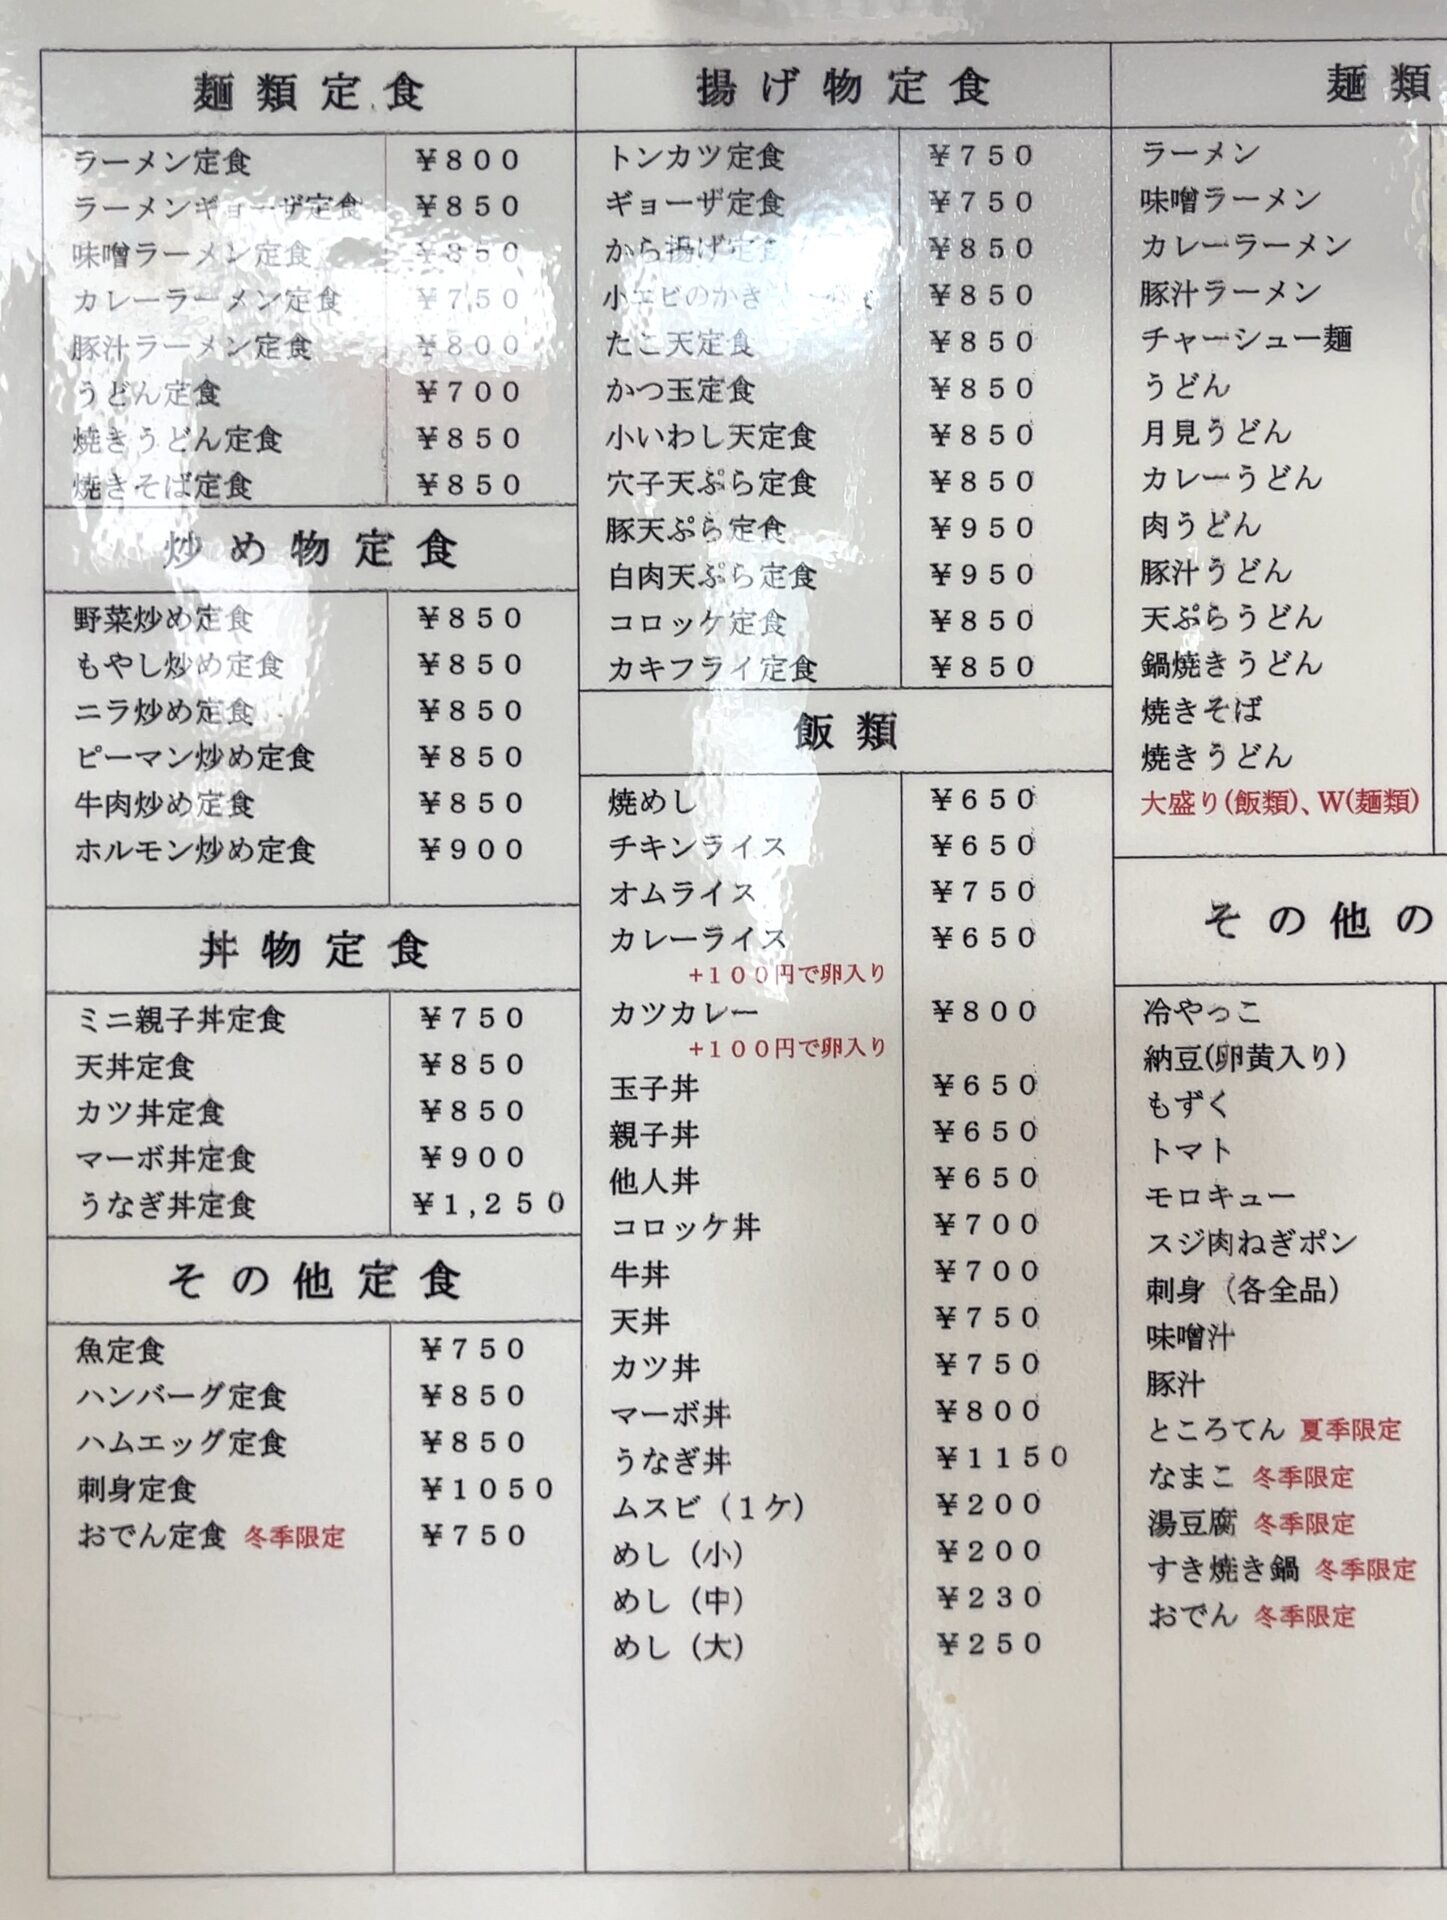 麺類定食
ラーメン定食 ¥800
ラーメンギョーザ定食 ¥850
味噌ラーメン定食 ¥850
カレーラーメン定食 ¥750
豚汁ラーメン定食 ¥800
うどん定食 ¥700
焼きうどん定食 ¥850
焼きそば定食 ¥850
炒め物定食
野菜炒め定食 ¥850
もやし炒め定食 ¥850
ニラ炒め定食 ¥850
ピーマン炒め定食 ¥850
牛肉炒め定食 ¥850
ホルモン炒め定食 ¥900
丼物定食
ミニ親子丼定食 ¥750
天丼定食 ¥850
カツ丼定食 ¥850
マーボ丼定食 ¥900
うなぎ丼定食 ¥1,250
その他定食
魚定食 ¥750
ハンバーグ定食 ¥850
ハムエッグ定食 ¥850
刺身定食 ¥1050
おでん定食 冬季限定 ¥750
揚げ物定食
トンカツ定食 ¥750
ギョーザ定食 ¥750
から揚げ定食 ¥850
小エビのかき ¥850
たこ天定食 ¥850
かつ玉定食 ¥850
小いわし天定食 ¥850
穴子天ぷら定食 ¥850
豚天ぷら定食 ¥950
白肉天ぷら定食 ¥950
コロッケ定食 ¥850
カキフライ定食 ¥850
飯類
焼めし ¥650
チキンライス ¥650
オムライス ¥750
カレーライス ¥650
+100円で卵入り
カツカレー ¥800
+100円で卵入り
玉子丼 ¥650
親子丼 ¥650
他人丼 ¥650
コロッケ丼 ¥700
牛丼 ¥700
天丼 ¥750
カツ丼 ¥750
マーボ丼 ¥800
うなぎ丼 ¥1150
ムスビ（1ケ） ¥200
めし（小） ¥200
めし（中） ¥230
めし（大） ¥250
麺類
ラーメン
味噌ラーメン
カレーラーメン
豚汁ラーメン
チャーシュー麺
うどん
月見うどん
カレーうどん
肉うどん
豚汁うどん
天ぷらうどん
鍋焼きうどん
焼きそば
焼きうどん
大盛り(飯類)、W(麺類)
その他の
冷やっこ
納豆(卵黄入り)
もずく
トマト
モロキュー
スジ肉ねぎポン
刺身（各全品）
味噌汁
豚汁
ところてん 夏季限定
なまこ 冬季限定
湯豆腐 冬季限定
すき焼き鍋 冬季限定
おでん 冬季限定